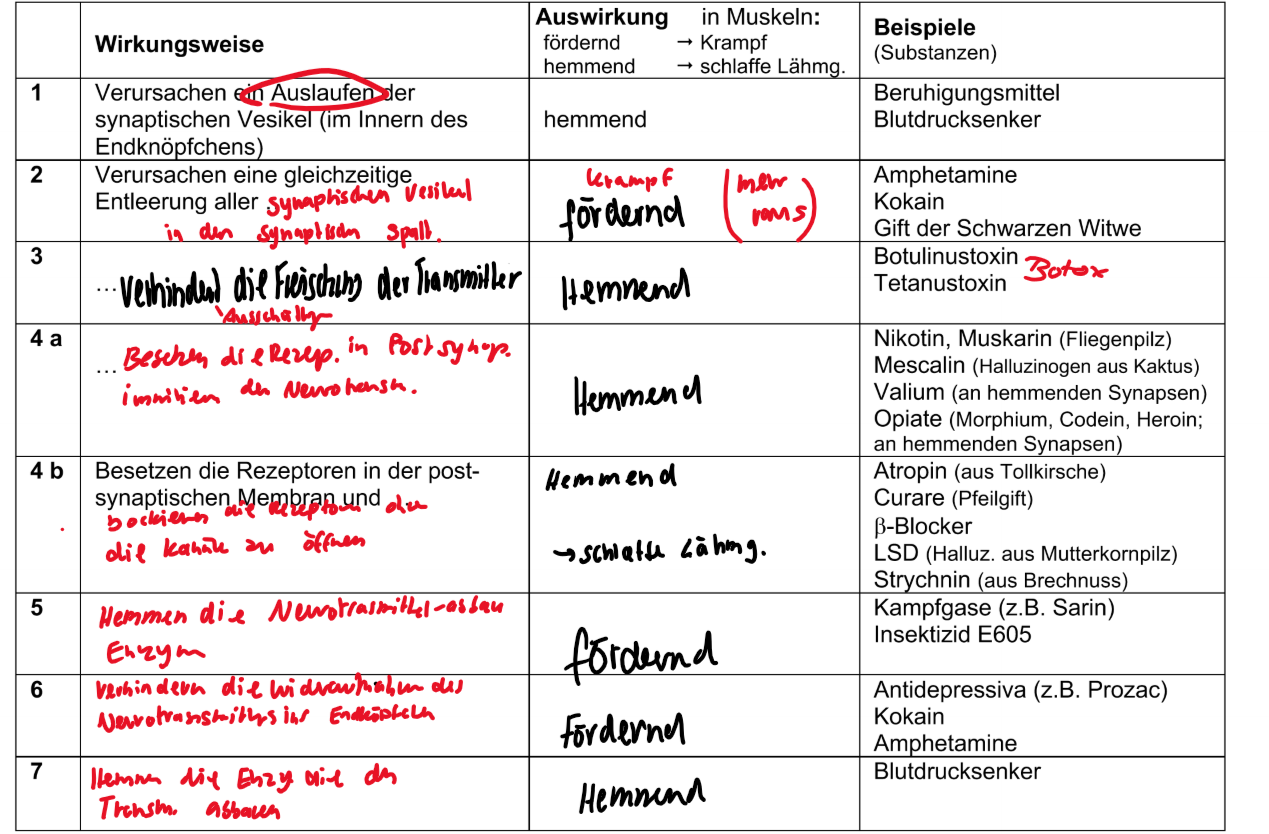 Wirkungsweise
Auswirkung in Muskeln:
fördernd → Krampf
hemmend → schlaffe Lähmg.
Beispiele
(Substanzen)
1
Verursachen ein Auslaufen der
synaptischen Vesikel (im Innern des
Endknöpfchens)
hemmend
Beruhigungsmittel
Blutdrucksenker
2
Verursachen eine gleichzeitige
Entleerung aller synaptischen Vesikel
in den synaptischen Spalt.
Krampf
fördernd
(mehr
raus)
Amphetamine
Kokain
Gift der Schwarzen Witwe
3
… verhindert die der Transmitter
Hemmend
Botulinustoxin
Tetanustoxin
Botox
4 a
…
die Rezep. in Postsynap.
Hemmend
Nikotin, Muskarin (Fliegenpilz)
Mescalin (Halluzinogen aus Kaktus)
Valium (an hemmenden Synapsen)
Opiate (Morphium, Codein, Heroin;
an hemmenden Synapsen)
4 b
Besetzen die Rezeptoren in der post-
synaptischen Membran und
die Rezeptoren
die Kanäle zu öffnen
Hemmend
→ schlaffe Lähmg.
Atropin (aus Tollkirsche)
Curare (Pfeilgift)
β-Blocker
LSD (Halluz. aus Mutterkornpilz)
Strychnin (aus Brechnuss)
5
Hemmen die Neurotrasmittel-abbau
Enzym
fördernd
Kampfgase (z.B. Sarin)
Insektizid E605
6
verhindern die des
ins
Fördernd
Antidepressiva (z.B. Prozac)
Kokain
Amphetamine
7
Hemmen die Enzy die den
Transm. abbauen
Hemmend
Blutdrucksenker